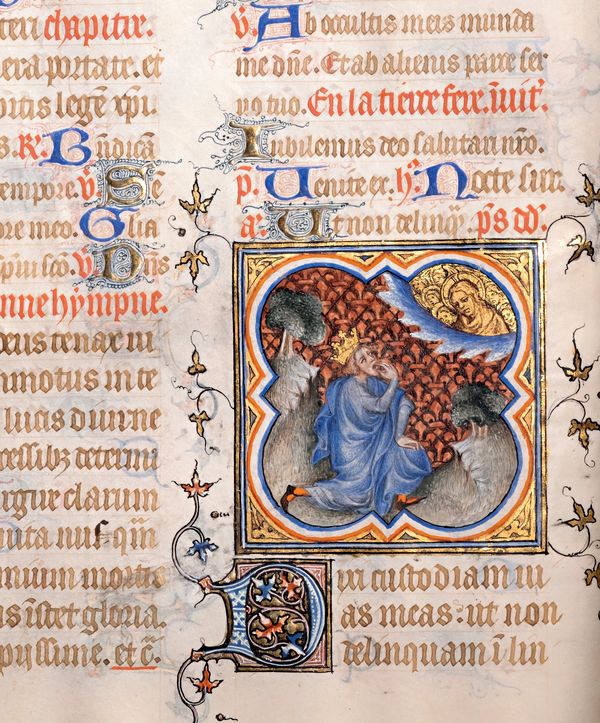 teri chapitre.
era portate. et
bitis legē xp̄i.
R. Bñdicā
tempore. V. Sē
ore meo. Glīa
sp̄ui scō. V. Dñs
hympne.
tenax ui
motus in te
lucis diurne
cessibz determi
argue clarum
munus mortis
s īstet gloria.
pijssime. et c̄.
V. Ab occultis meis munda
me dñe. Et ab alienis parce ser
uo tuo. En la tierce fere. īuit.
Iubilemus deo salutari nr̄o.
p̄. Uenite ex. h. Nocte sur.
a. Ut non delinq̄. p̄s dd̄.
Dixi custodiam ui
as meas: ut non
delinquam ī lin